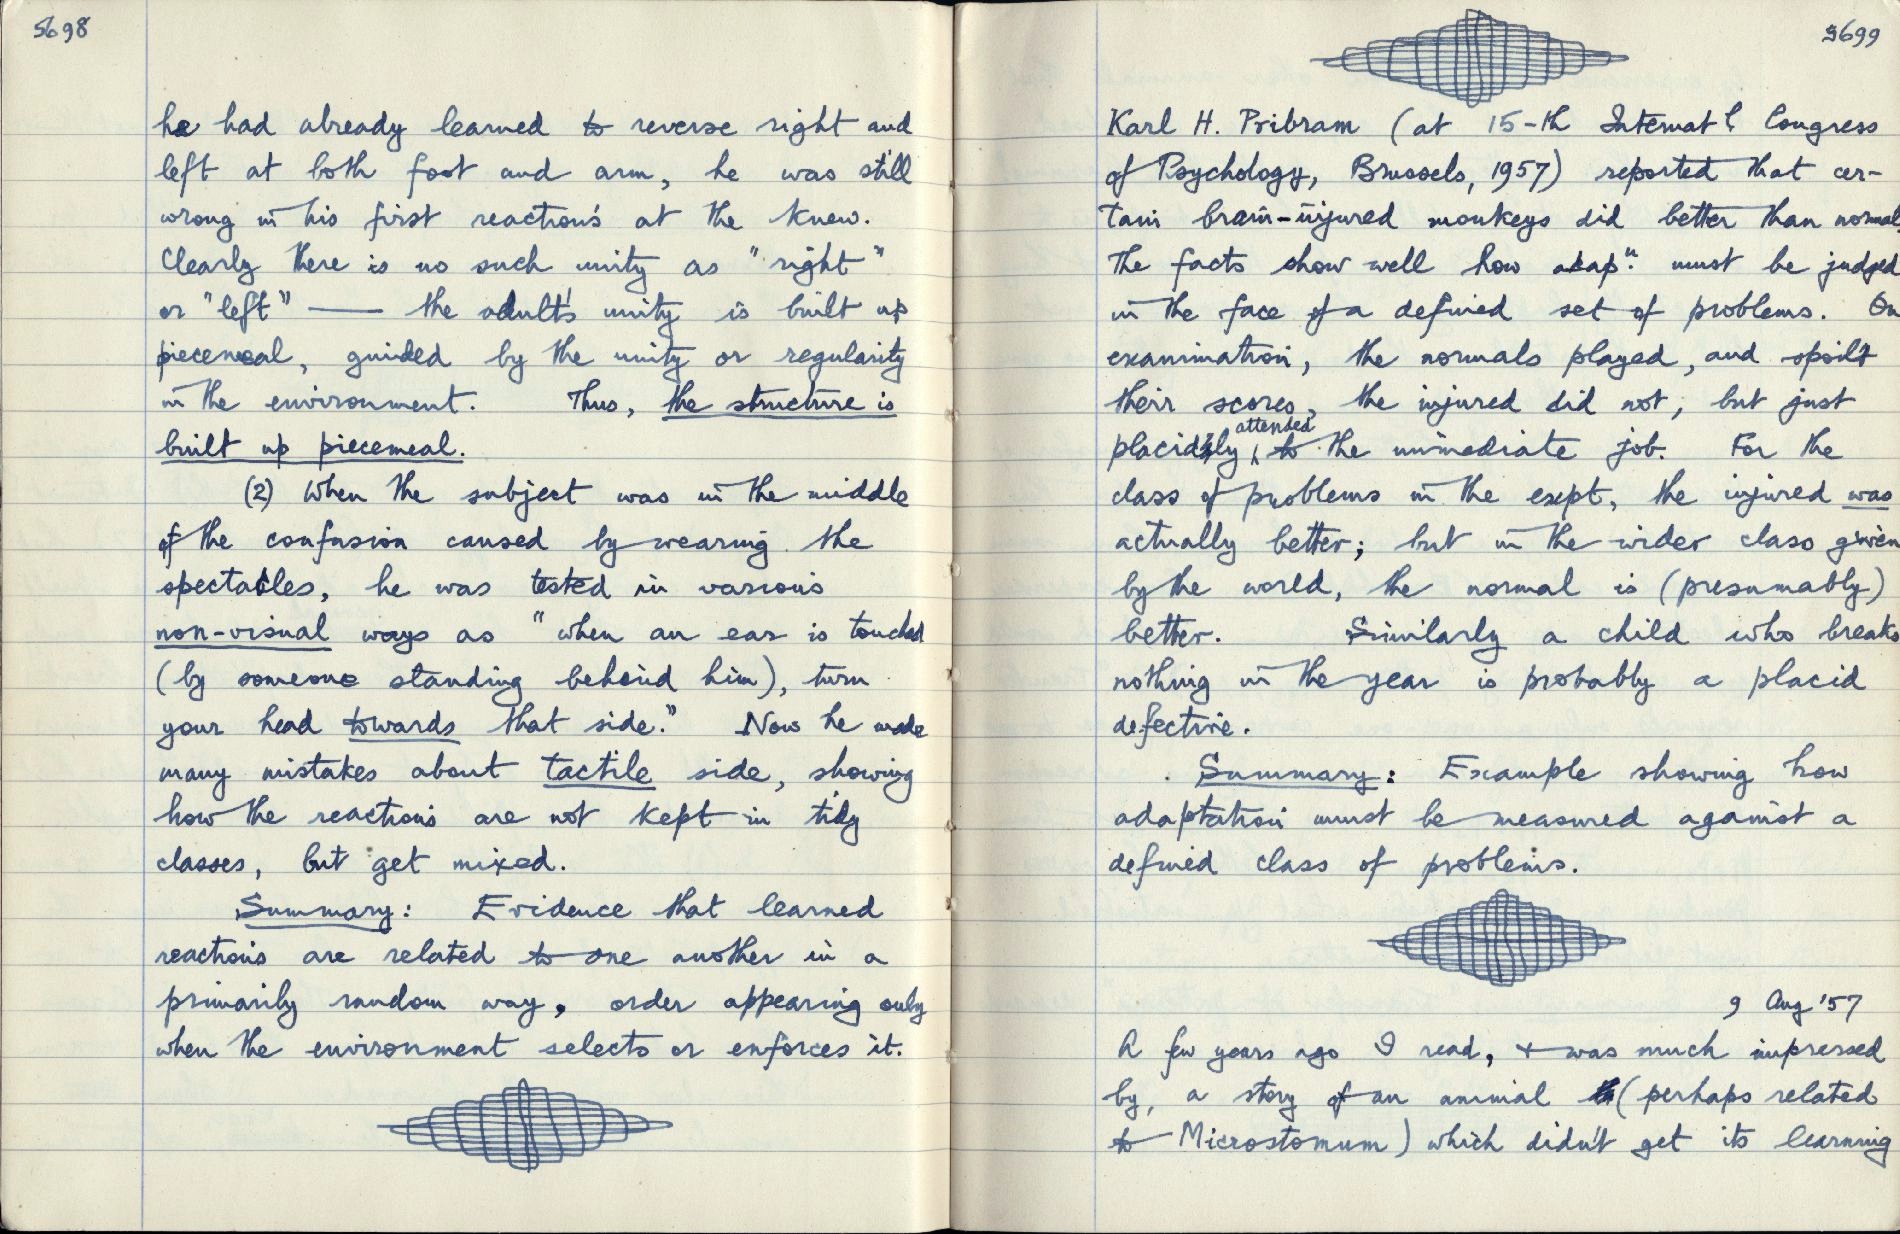 5698
he had already learned to reverse right and
left at both foot and arm, he was still
wrong in his first reactions at the knew.
Clearly there is no such unity as "right"
or "left" — the adult's unity is built up
piecemeal, guided by the unity or regularity
in the environment. Thus, the structure is
built up piecemeal.
(2) When the subject was in the middle
of the confusion caused by wearing the
spectables, he was tested in various
non-visual ways as "when an ear is touched
(by someone standing behind him), turn
your head towards that side." Now he made
many mistakes about tactile side, showing
how the reactions are not kept in tidy
classes, but get mixed.
Summary: Evidence that learned
reactions are related to one another in a
primarily random way, order appearing only
when the environment selects or enforces it.
5699
Karl H. Pribram (at 15-th Internat'l. Congress
of Psychology, Brussels, 1957) reported that cer-
tain brain-injured monkeys did better than normal.
The facts show well how adap.n must be judged
in the face of a defined set of problems. On
examination, the normals played, and spoilt
their scores, the injured did not, but just
placidly attended to the immediate job. For the
class of problems in the expt, the injured was
actually better; but in the wider class given
by the world, the normal is (presumably)
better. Similarly a child who breaks
nothing in the year is probably a placid
defective.
Summary: Example showing how
adaptation must be measured against a
defined class of problems.
9 Aug '57
A few years ago I read, + was much impressed
by, a story of an animal (perhaps related
to Microstomum) which didn't get its learning